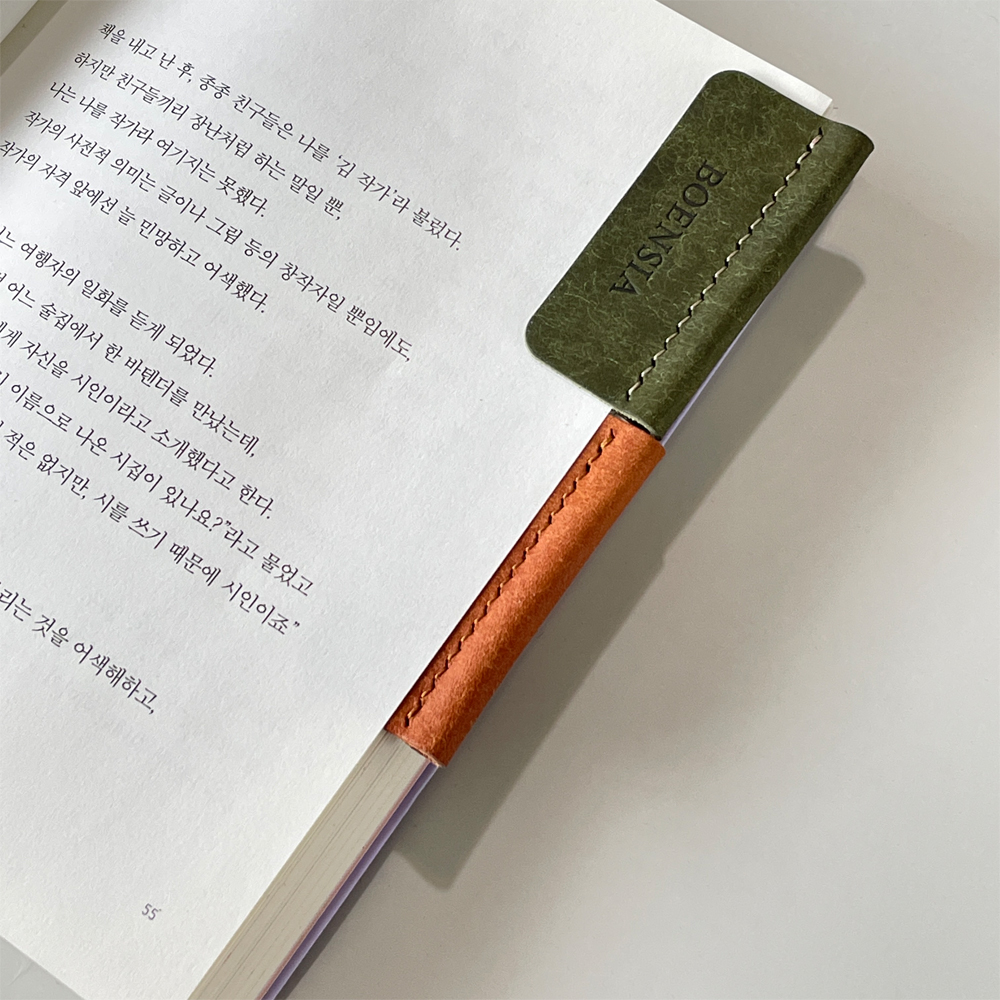 책을 내고 난 후, 종종 친구들은 나를 '김 작가'라 불렀다.
하지만 친구들끼리 장난처럼 하는 말일 뿐,
나는 나를 작가라 여기지는 못했다.
작가의 사전적 의미는 글이나 그림 등의 창작자일 뿐임에도,
작가의 자격 앞에선 늘 민망하고 어색했다.
는 여행자의 일화를 듣게 되었다.
어느 술집에서 한 바텐더를 만났는데,
에게 자신을 시인이라고 소개했다고 한다.
이름으로 나온 시집이 있나요?"라고 물었고
적은 없지만, 시를 쓰기 때문에 시인이죠"
라는 것을 어색해하고,
55
BOENSIA